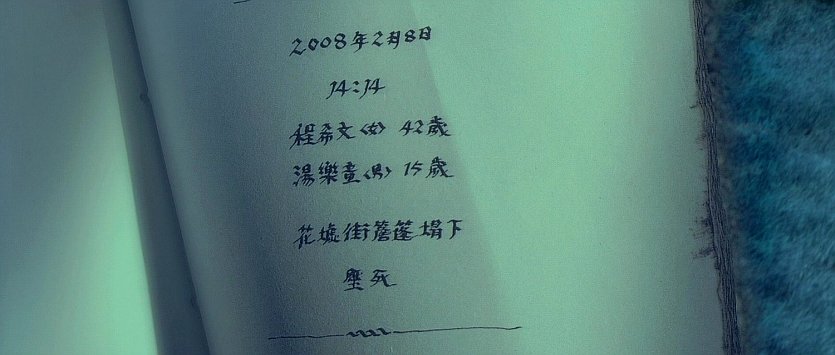 2008年2月8日
14:14
程希文<女> 42歲
湯樂童<男> 15歲
花墟街簷篷塌下
壓死